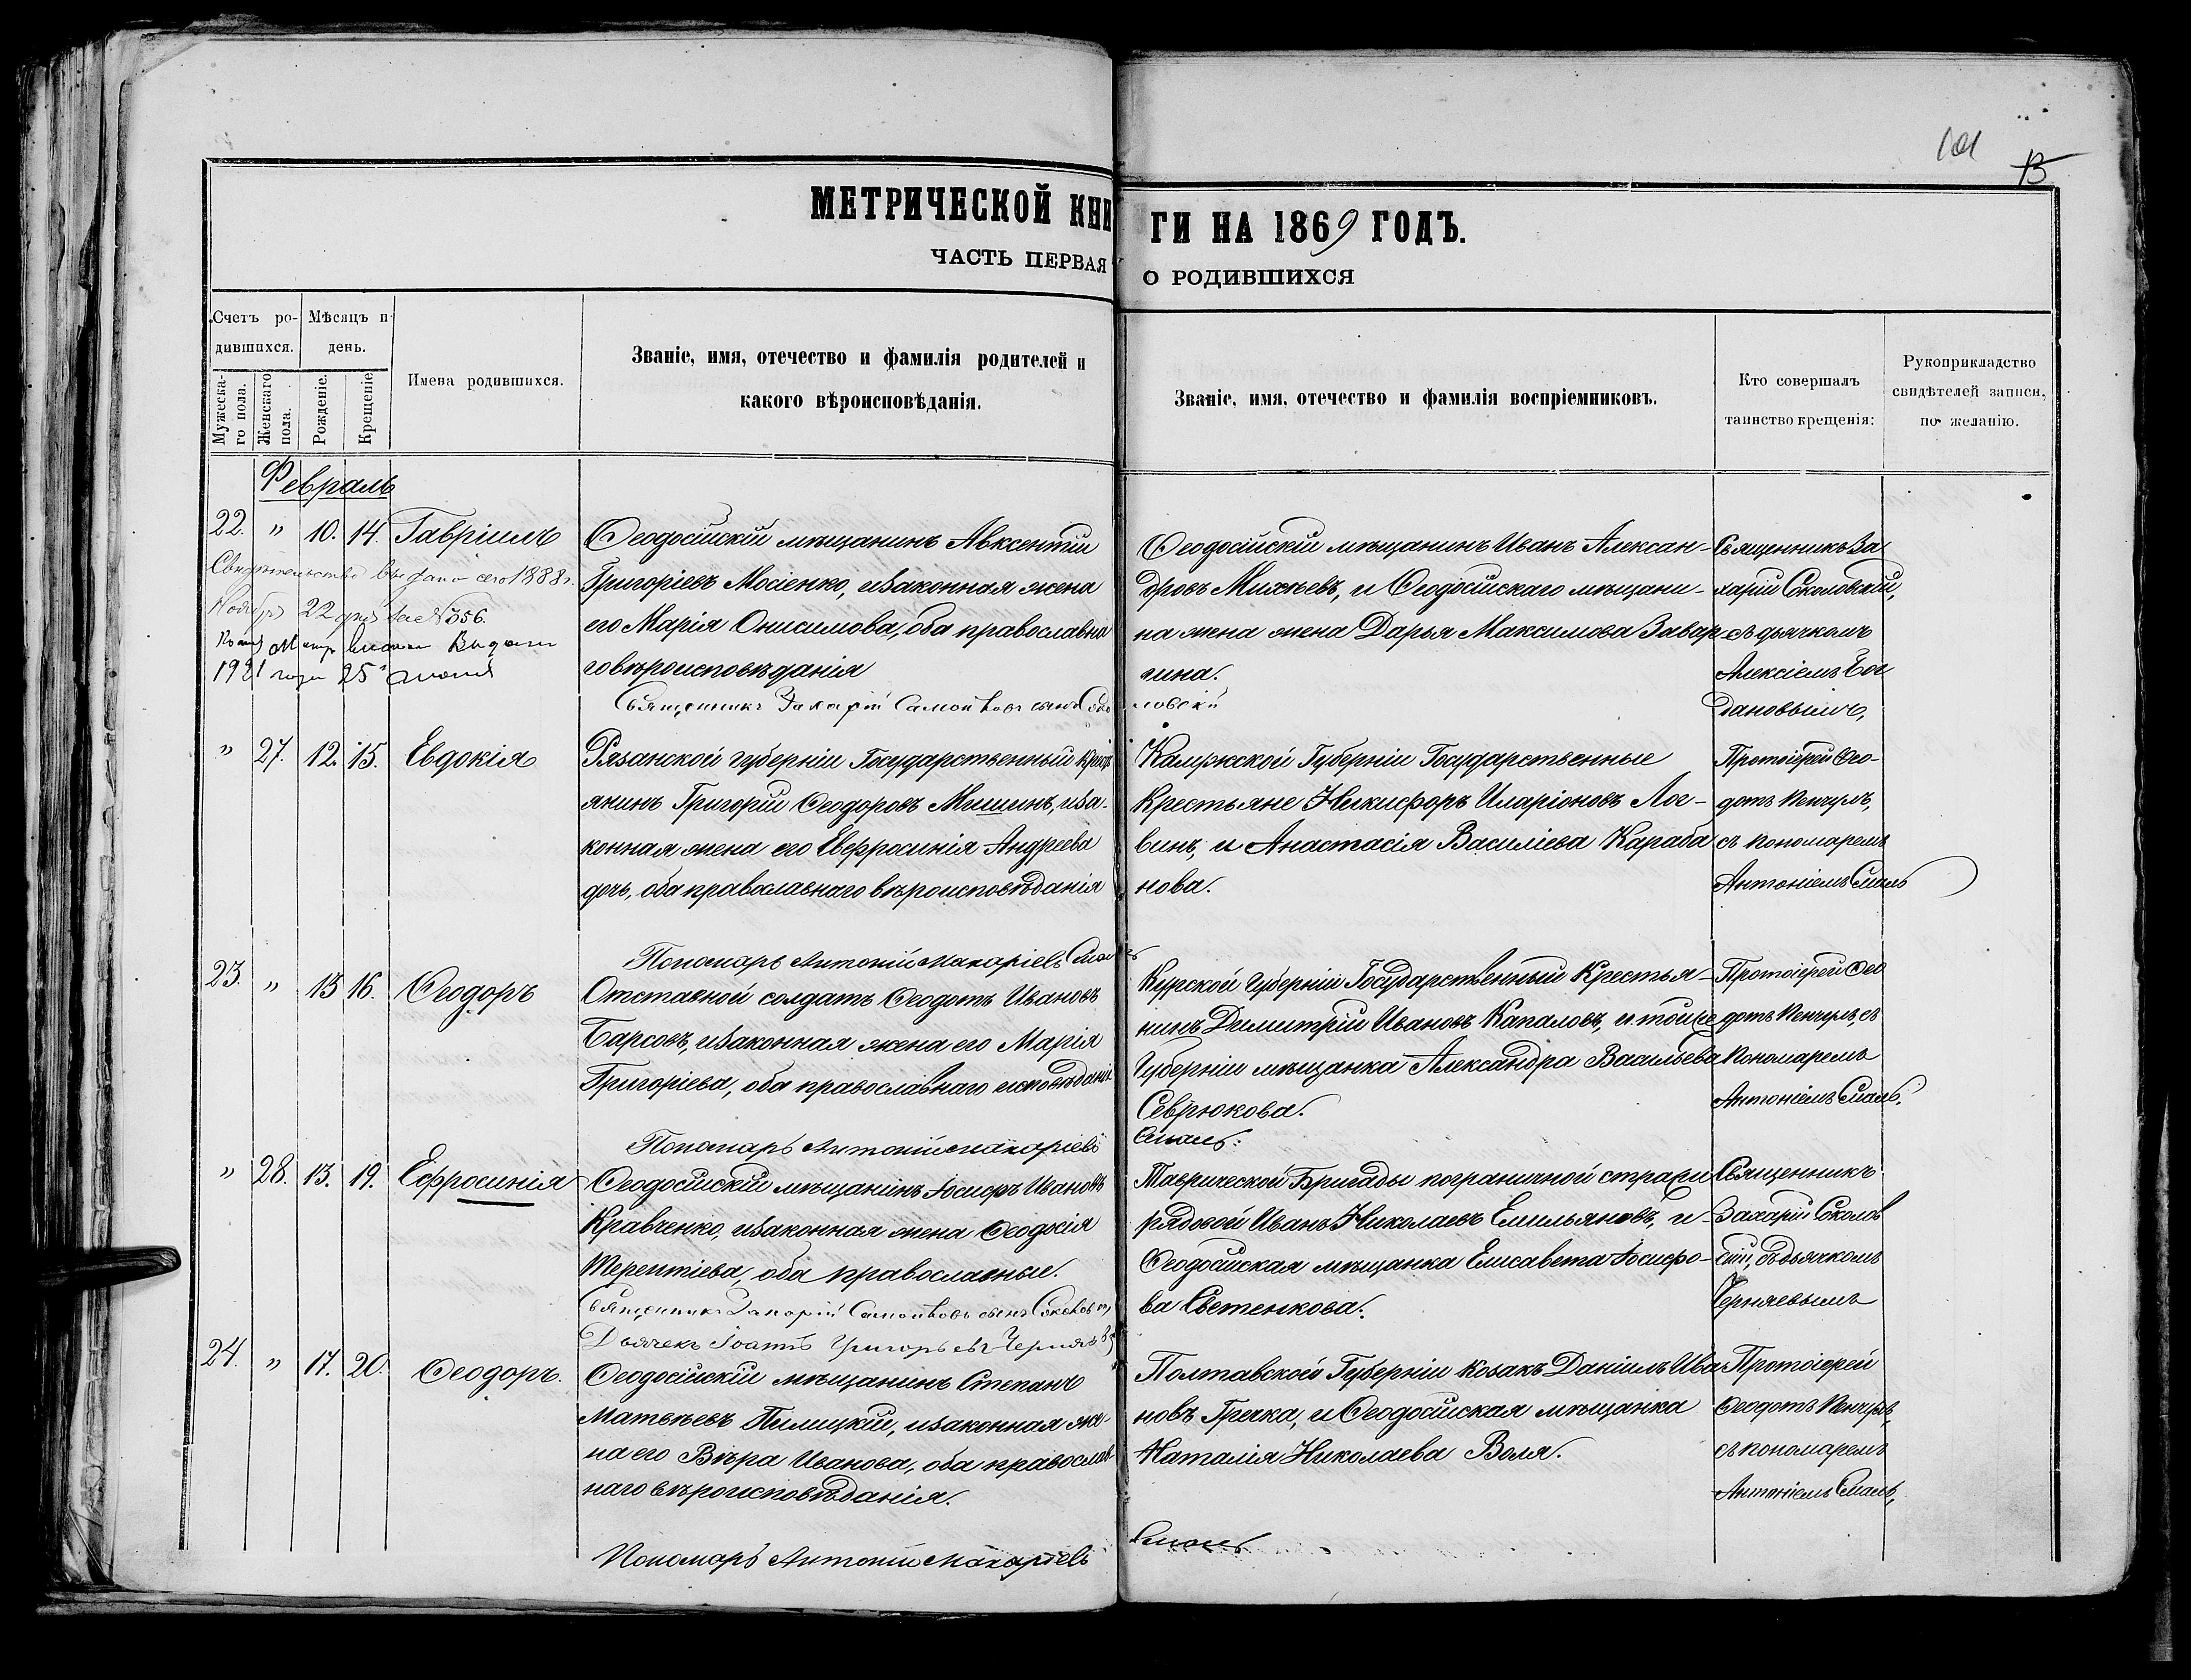 101
13
МЕТРИЧЕСКОЙ КНИГИ НА 1869 ГОДЪ.
ЧАСТЬ ПЕРВАЯ О РОДИВШИХСЯ
Счетъ ро-дившихся.
Мужеска-го пола.
Женскаго пола.
Мѣсяцъ и день.
Рожденіе.
Крещеніе
Имена родившихся.
Званіе, имя, отечество и фамилія родителей и
какого вѣроисповѣданія.
Званіе, имя, отечество и фамилія воспріемниковъ.
Кто совершалъ
таинство крещенія:
Рукоприкладство
свидѣтелей записи,
по желанію.
Февраль
22. " 10. 14. Гавріилъ
Свидѣтельство выдано сего 1888 г.
Ноября 22 дня за № 556.
Выдан
1921 года 25
Ѳеодосійскій мѣщанинъ Авксентій
Григоріевъ Мосіенко, и законная жена
его Марія Онисимова, оба православна
го вѣроисповѣданія
Ѳеодосійскій мѣщанинъ Иванъ Алексан-
дровъ Михѣевъ, и Ѳеодосійскаго мѣщани-
на жена жена Дарья Максимова Завар
гина.
Священникъ За
харій Соколовскій,
съ дьячкомъ
Алексіемъ Бог
дановымъ,
Священникъ Захарій Самойловъ сынъ Соколовскій
" 27. 12. 15. Евдокія
Рязанской губерніи Государственный крест
янинъ Григорій Ѳеодоровъ Мишинъ, и за-
конная жена его Евфросинія Андреева
дочь, оба православнаго вѣроисповѣданія
Калужской Губерніи Государственные
Крестьяне Никифоръ Иларіоновъ Лог-
винъ, и Анастасія Василіева Караба
нова.
Протоіерей Ѳео-
дотъ Кенчулъ,
съ пономаремъ
Антоніемъ Смаль
Пономарь Антоній Макаріевъ Смаль
23. " 13 16. Ѳеодоръ
Отставной солдатъ Ѳеодотъ Ивановъ
Барсовъ, и законная жена его Марія
Григоріева, оба православнаго исповѣданія
Курской Губерніи Государственный Крестья-
нинъ Димитрій Ивановъ Капаловъ, и той же
Губерніи мѣщанка Александра Васильева
Севрюкова.
Протоіерей Ѳео
дотъ Кенчулъ, съ
Пономаремъ
Антоніемъ Смаль.
Пономарь Антоній Макаріевъ Смаль:
" 28. 13. 19. Ефросинія
Ѳеодосійскій мѣщанинъ Іосифъ Ивановъ
Кравченко, и законная жена Ѳеодосія
Терентіева, оба православные.
Таврической Бригады пограничной стражи
рядовой Иванъ Николаевъ Емельяновъ, и
Ѳеодосійская мѣщанка Елисавета Іосифо-
ва Светенкова.
Священникъ
Захарій Соколов
скій, съ дьячкомъ
Черняевымъ
Священникъ Захарій Самойловъ сынъ
Дьячекъ Іоаннъ Григорьевъ Черняевъ
24. " 17. 20. Ѳеодоръ.
Ѳеодосійскій мѣщанинъ Степанъ
Матвѣевъ Пилицкій, и законная же-
на его Вѣра Иванова, оба православ
наго вѣроисповѣданія.
Полтавской Губерніи козакъ Даніилъ Ива
новъ Гречка, и Ѳеодосійская мѣщанка
Наталія Николаева Воля.
Протоіерей
Ѳеодотъ Кенчулъ,
съ пономаремъ
Антоніемъ Смаль,
Пономарь Антоній Макаріевъ Смаль